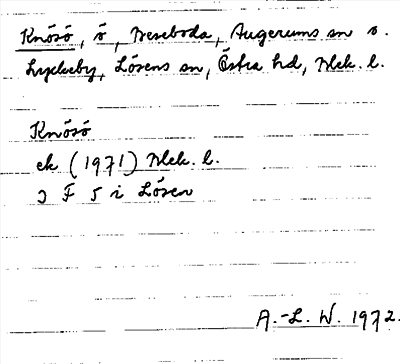 Knösö, ö, Vreseboda, Augerums sn o.
Lyckeby, Lösens sn, Östra hd, Blek. l.
Knösö
ek (1971) Blek. l.
3 F 5 i Lösen
A.-L. W. 1972.